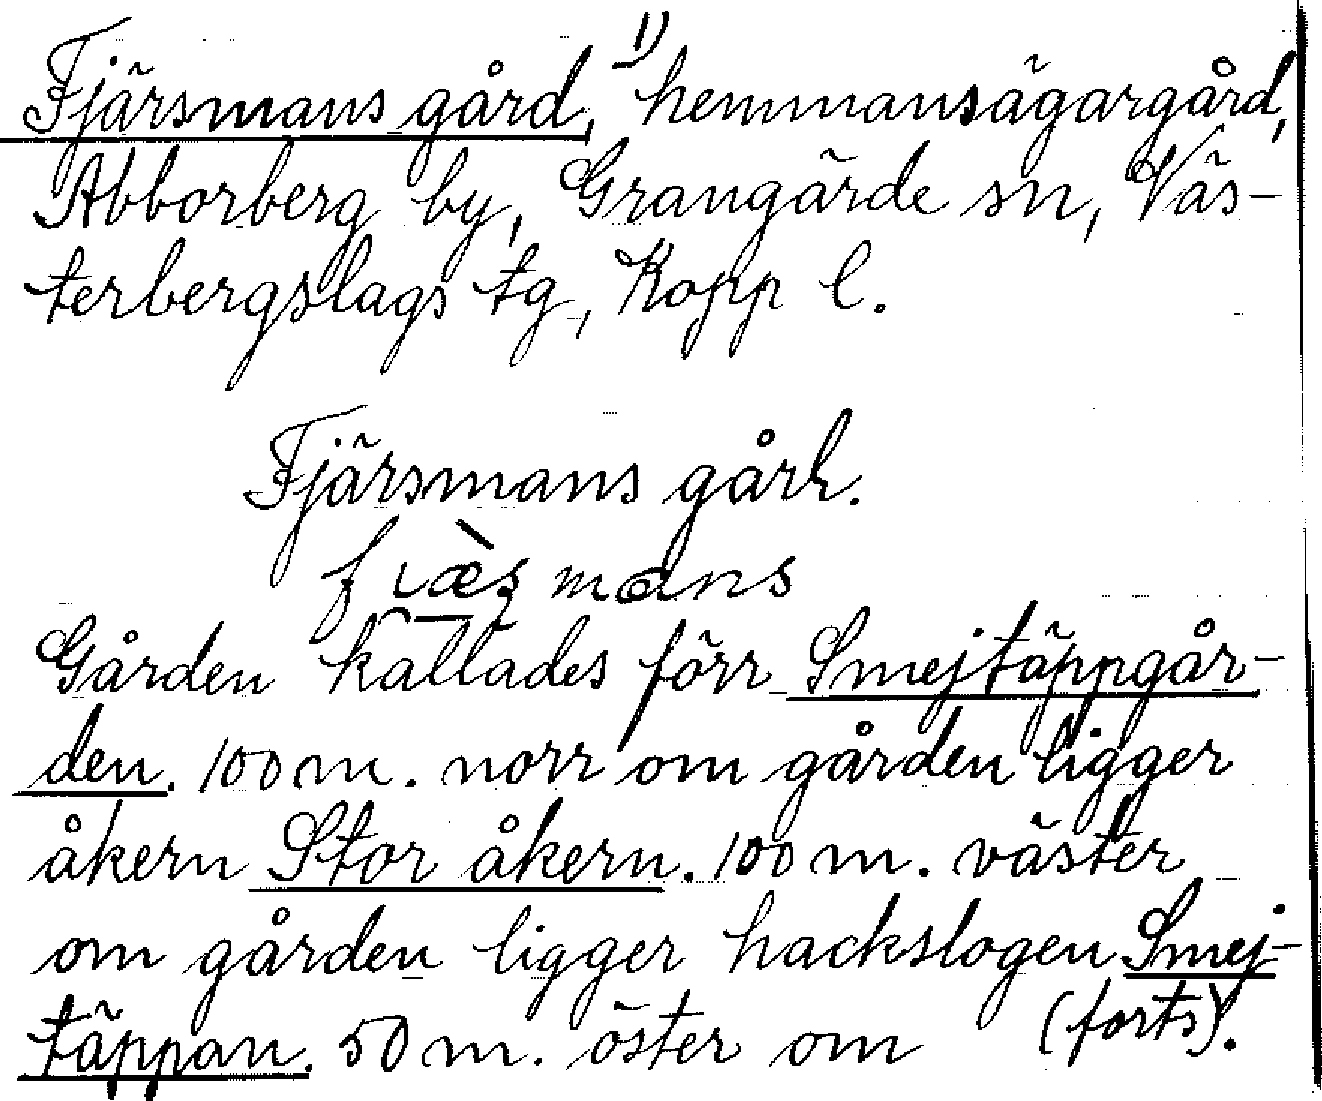 Fjärsmans gård, 1) hemmansägargård,
Abborberg by, Grangärde sn, Väs-
terbergslags tg, Kopp l.
Fjärsmans gård.
Gården kallades förr Smejtäppgår-
den. 100 m. norr om gården ligger
åkern Stor åkern. 100 m. väster
om gården ligger hackslogen Smej-
täppan. 50 m. öster om (forts).